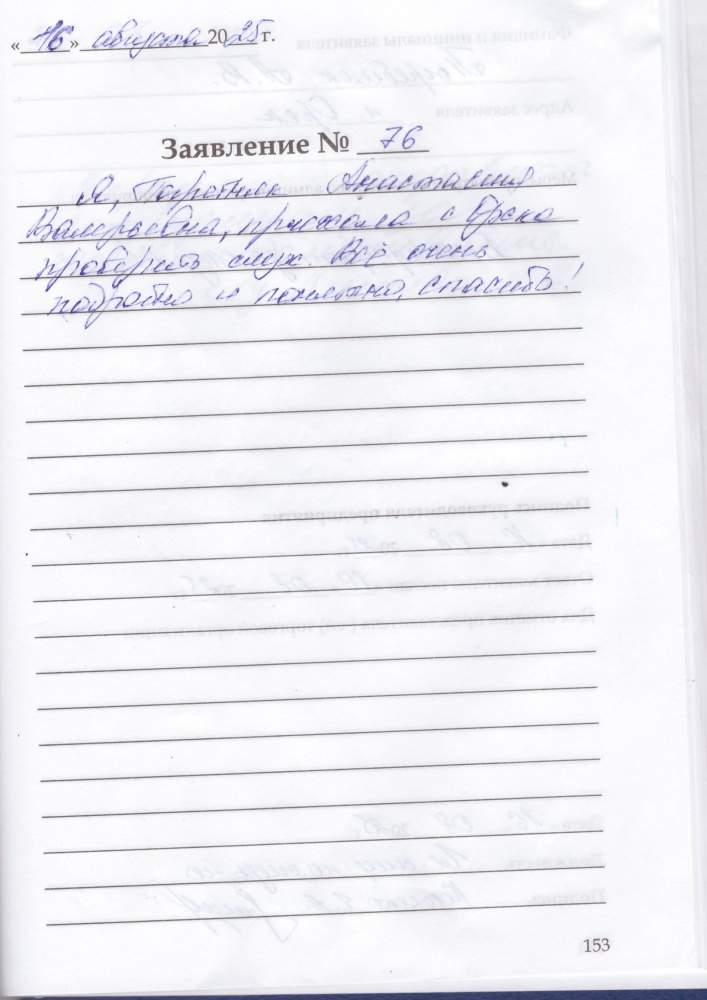 «16» августа 2025 г.
Заявление № 76
Я, Анастасия
Валерьевна, приехала с Орска
проверить слух. Всё очень
подробно и понятно, спасибо!
153